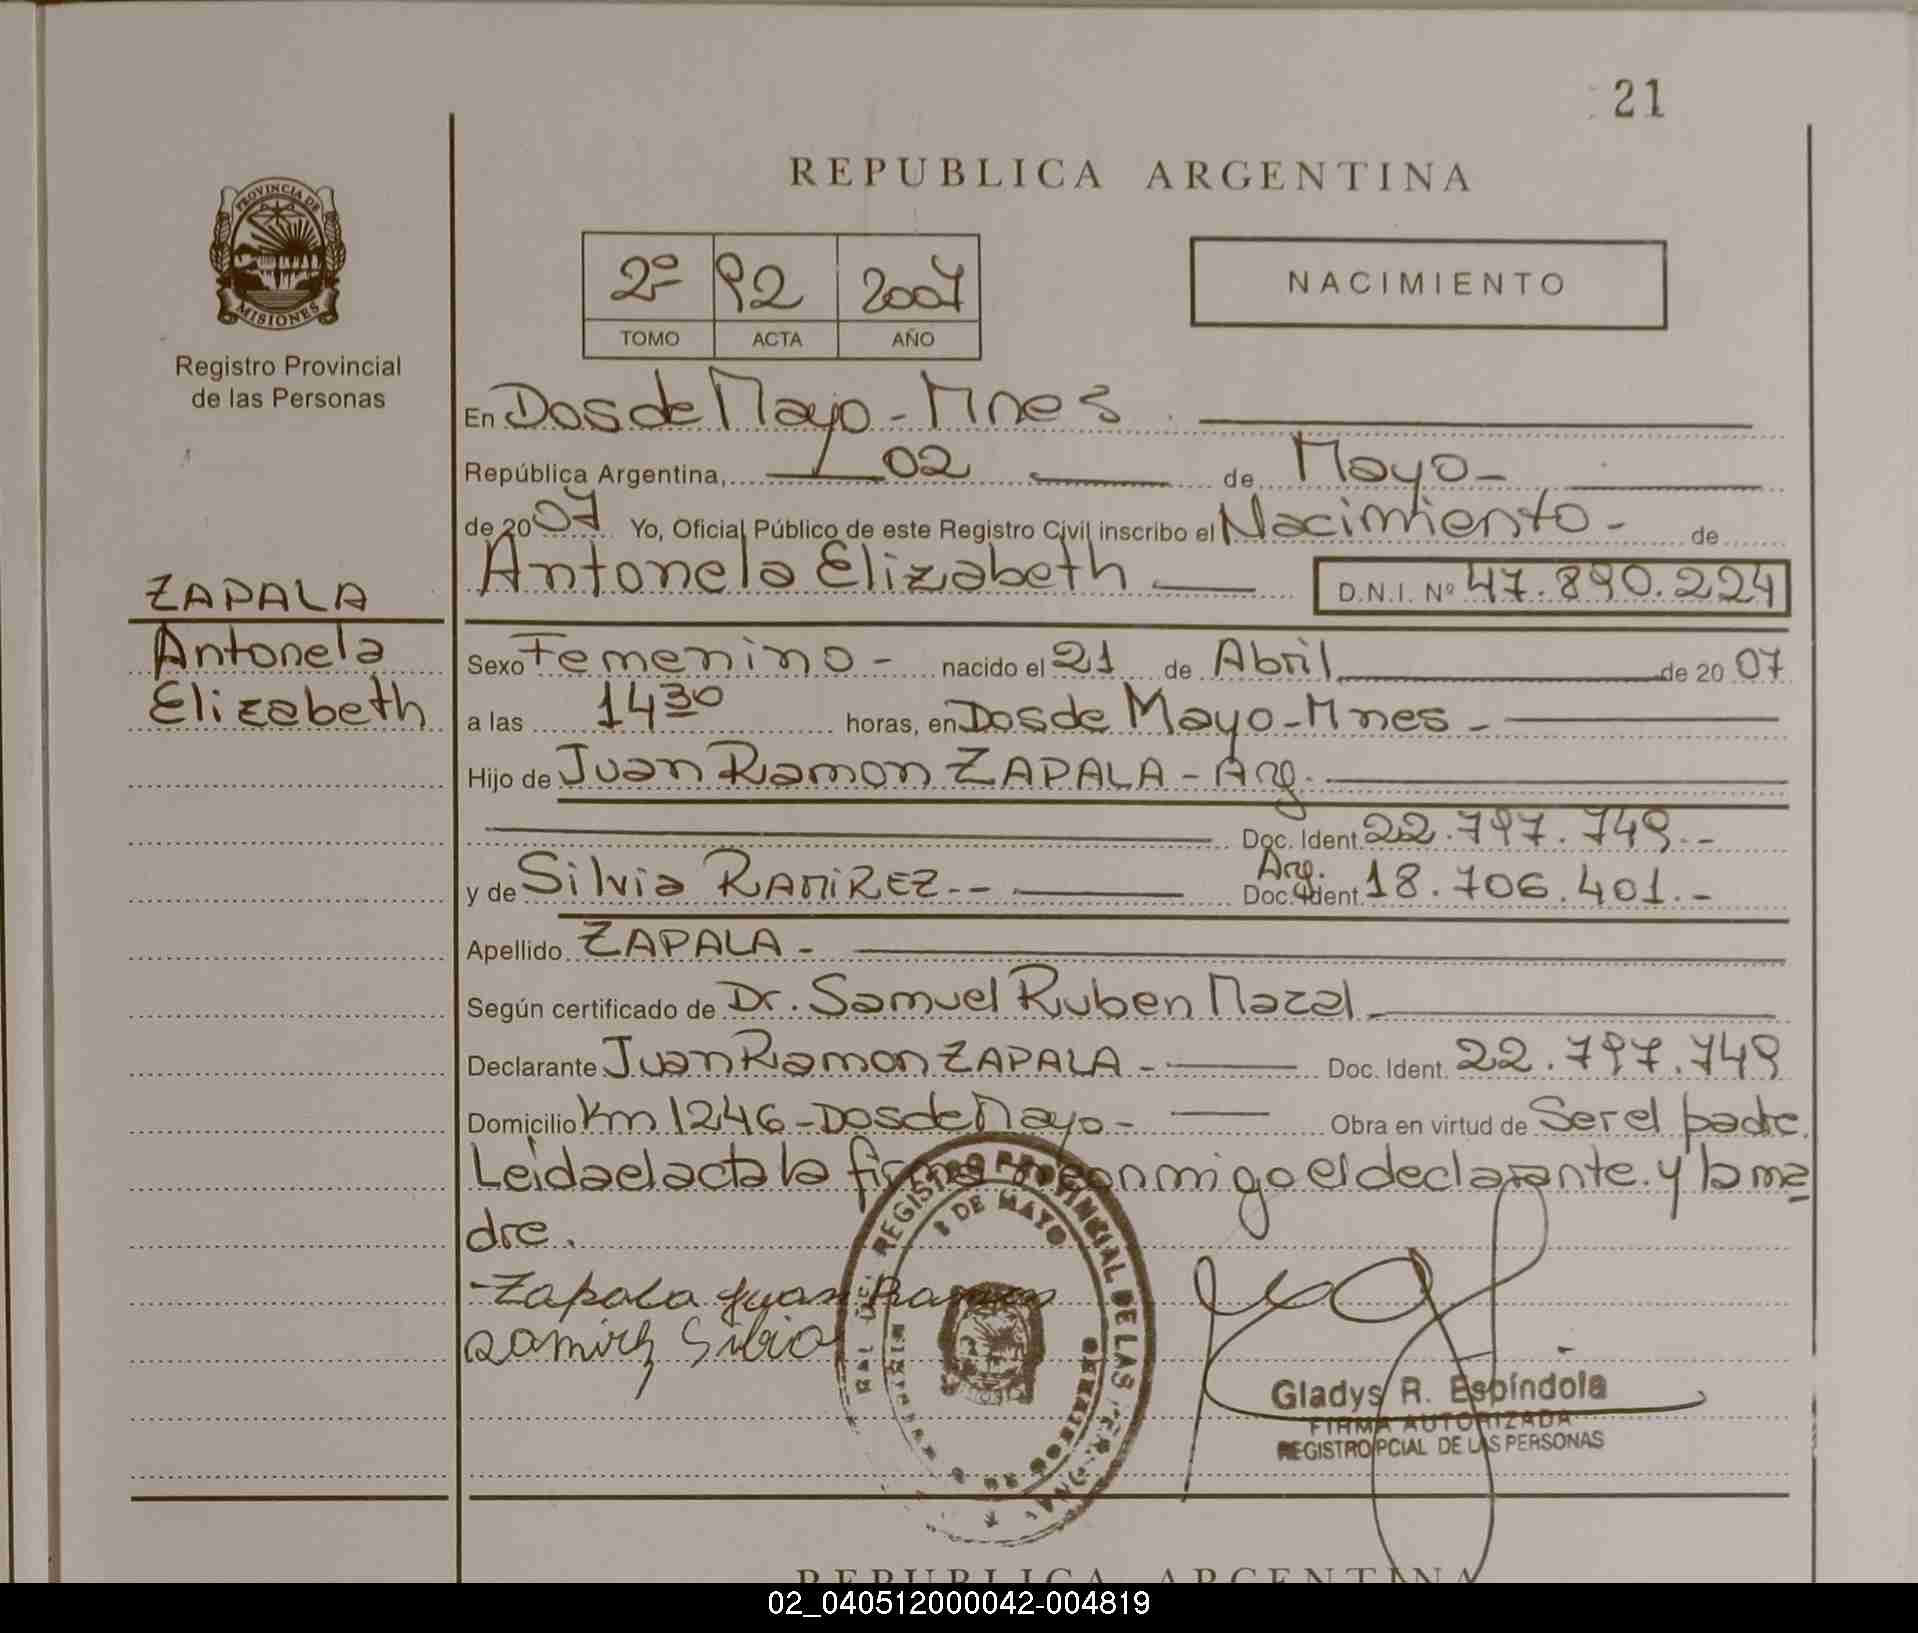 21
REPUBLICA ARGENTINA
PROVINCIA DE
MISIONES
Registro Provincial
de las Personas
2º 92 2007
TOMO ACTA AÑO
NACIMIENTO
En Dos de Mayo - Mnes
República Argentina, 02 de Mayo -
de 2007 Yo, Oficial Público de este Registro Civil inscribo el Nacimiento - de
Antonela Elizabeth D.N.I. Nº 47.890.224
ZAPALA
Antonela
Elizabeth
Sexo Femenino - nacido el 21 de Abril de 2007
a las 14 30 horas, en Dos de Mayo - Mnes -
Hijo de Juan Ramon ZAPALA - Arg.
Doc. Ident. 22.797.749.-
y de Silvia RAMIREZ.-- Arg. Doc. Ident. 18.706.401.-
Apellido ZAPALA -
Según certificado de Dr. Samuel Ruben Mazal
Declarante Juan Ramon ZAPALA - Doc. Ident. 22.797.749
Domicilio Km 1246 - Dos de Mayo - Obra en virtud de Ser el padre.
Leida el acta la firma conmigo el declarante y la ma
dre.
- Zapala Juan Ramon
Ramirez Silvia
REGISTRO PROVINCIAL DE LAS
DE MAYO
Gladys R. Espíndola
FIRMA AUTORIZADA
REGISTRO PCIAL DE LAS PERSONAS
REPUBLICA ARGENTINA
02_040512000042-004819